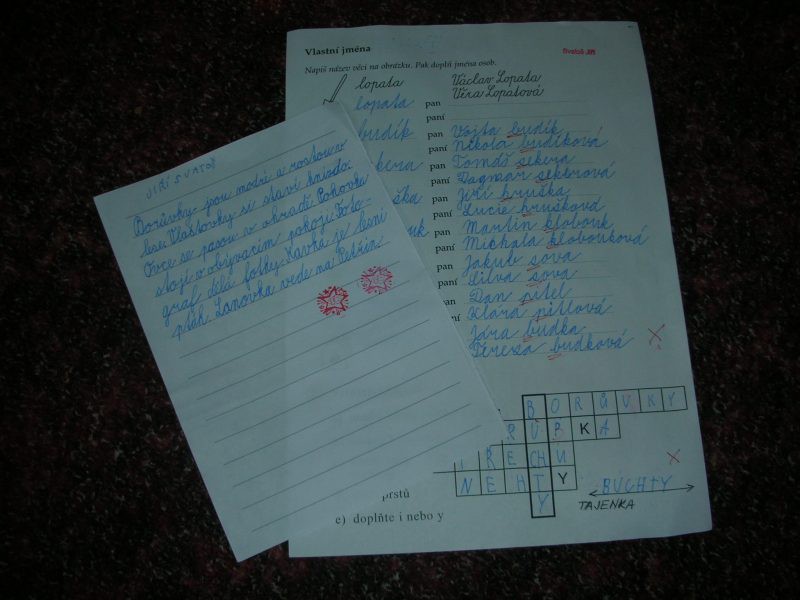 JIŘÍ SVATOŠ
Borůvky jsou modré a rostou v
lese. Vlaštovky si staví hnízdo.
Ovce se pasou v ohradě. Pohovka
stojí v obývacím pokoji. Foto-
graf dělá fotky. Kavka je lesní
pták. Lanovka vede na Petřín.
Vlastní jména
Svatoš Jiří
Napiš název věci na obrázku. Pak doplň jména osob.
lopata Václav Lopata
Věra Lopatová
lopata pan
paní
budík pan Vojta budík
paní Nikola budíková
kera pan Tomáš sekera
paní Dagmar sekerová
ška pan Jiří hruška
paní Lucie hrušková
uk pan Martin klobouk
paní Michala kloboučková
pan Jakub sova
paní Silva sova
pan Dan pitel
ní Klára pitlová
Jára budka
Tereza budková
BORŮVKY
RŮŽKA
ŘECHU
NEHTY
BUCHTY
TAJENKA
prstů
e) doplňte i nebo y